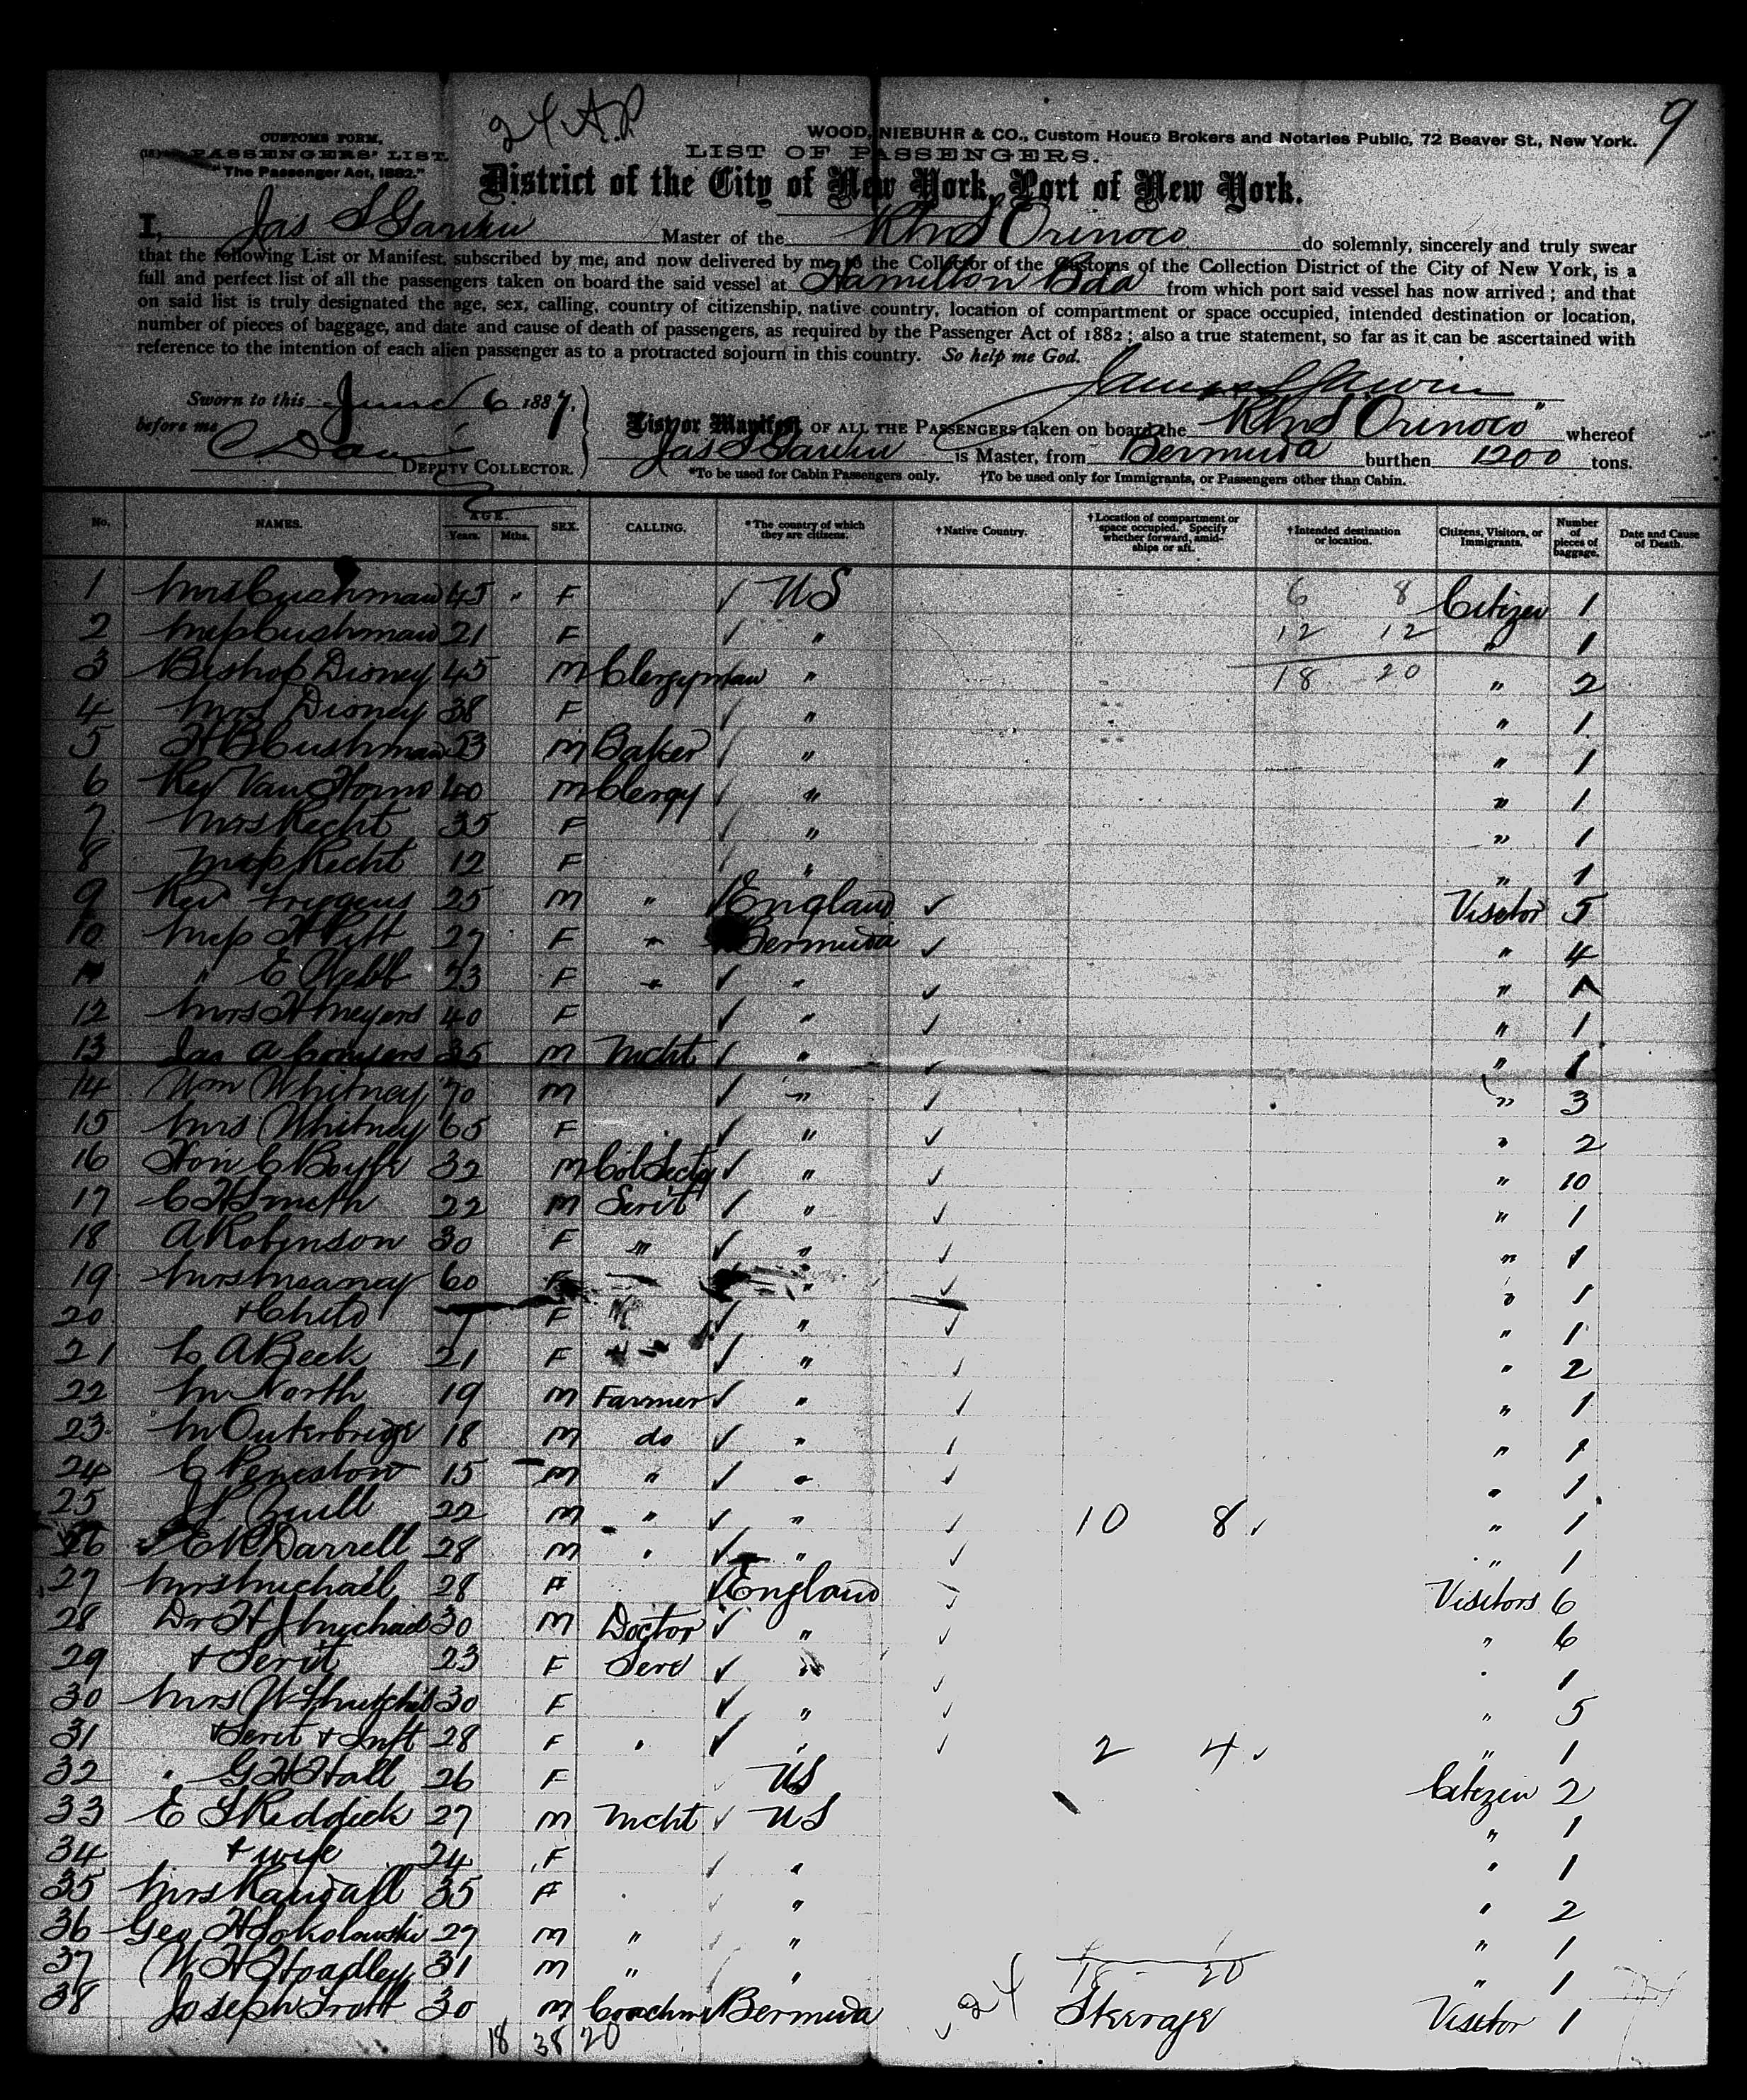 9
24 A.P
CUSTOMS FORM,
PASSENGERS' LIST.
"The Passenger Act, 1882."
WOOD, NIEBUHR & CO., Custom House Brokers and Notaries Public, 72 Beaver St., New York.
LIST OF PASSENGERS.
District of the City of New York, Port of New York.
I, Jas S Garvin Master of the RMS Orinoco do solemnly, sincerely and truly swear
that the following List or Manifest, subscribed by me, and now delivered by me to the Collector of the Customs of the Collection District of the City of New York, is a
full and perfect list of all the passengers taken on board the said vessel at Hamilton Bda from which port said vessel has now arrived; and that
on said list is truly designated the age, sex, calling, country of citizenship, native country, location of compartment or space occupied, intended destination or location,
number of pieces of baggage, and date and cause of death of passengers, as required by the Passenger Act of 1882; also a true statement, so far as it can be ascertained with
reference to the intention of each alien passenger as to a protracted sojourn in this country. So help me God.
James S Garvin
Sworn to this June 6 1887.
before me
DEPUTY COLLECTOR.
List or Manifest OF ALL THE PASSENGERS taken on board the RMS Orinoco whereof
Jas S Garvin is Master, from Bermuda burthen 1200 tons.
*To be used for Cabin Passengers only. †To be used only for Immigrants, or Passengers other than Cabin.
No. NAMES. AGE. Years. Mths. SEX. CALLING. *The country of which they are citizens. †Native Country. †Location of compartment or space occupied. Specify whether forward, amidships or aft. †Intended destination or location. Citizens, Visitors, or Immigrants. Number of pieces of baggage. Date and Cause of Death.
1 Mrs Cushman 45 F ✓ US 6 8 Citizen 1
2 Miss Cushman 21 F ✓ " 12 12 " 1
3 Bishop Disney 45 M Clergyman " 18 20 " 2
4 Mrs Disney 38 F ✓ " " 1
5 H B Cushman 23 M Baker ✓ " " 1
6 Rev Van Horne 40 M Clergy ✓ " " 1
7 Mrs Recht 35 F ✓ " " 1
8 Miss Recht 12 F ✓ " " 1
9 Rev Triggens 25 M " ✓ England ✓ Visitor 5
10 Miss H Pitt 27 F " Bermuda ✓ " 4
11 " E Webb 23 F " ✓ " ✓ " 1
12 Mrs H Meyers 40 F ✓ " ✓ " 1
13 Jas A Conyers 35 M Mcht ✓ " ✓ " 1
14 Wm Whitney 70 M ✓ " ✓ " 3
15 Mrs Whitney 65 F ✓ " ✓ " 2
16 Hon C Boyle 32 M Col Secty ✓ " ✓ " 10
17 C H Smith 22 M Servt ✓ " ✓ " 1
18 A Robinson 30 F " ✓ " ✓ " 1
19 Mrs Meaney 60 F " ✓ " 1
20 + Child F ✓ " ✓ " 1
21 L A Beek 21 F ✓ " ✓ " 2
22 M North 19 M Farmer ✓ " ✓ " 1
23 M Outerbridge 18 M do ✓ " ✓ " 1
24 C Peneston 15 M " ✓ " ✓ " 1
25 J P Zuill 22 M " ✓ " ✓ 10 8 ✓ " 1
26 E R Darrell 28 M " ✓ " ✓ " 1
27 Mrs Michael 28 F ✓ England ✓ Visitors 6
28 Dr H J Michael 30 M Doctor ✓ " ✓ " 6
29 + Servt 23 F Serv ✓ " ✓ " 1
30 Mrs W 30 F ✓ " ✓ " 5
31 + Servt + Inft 28 F " ✓ " ✓ 2 4 ✓ " 1
32 " G H Hall 26 F ✓ US Citizen 2
33 E S Reddick 27 M Mcht ✓ US " 1
34 + wife 24 F ✓ " " 1
35 Mrs Randall 35 F ✓ " " 2
36 Geo H Sokolowski 27 M " ✓ " " 1
37 W H Hoadley 31 M " ✓ " 18 20 " 1
38 Joseph Trott 30 M Coachm Bermuda ✓ 24 Steerage Visitor 1
18 38 20